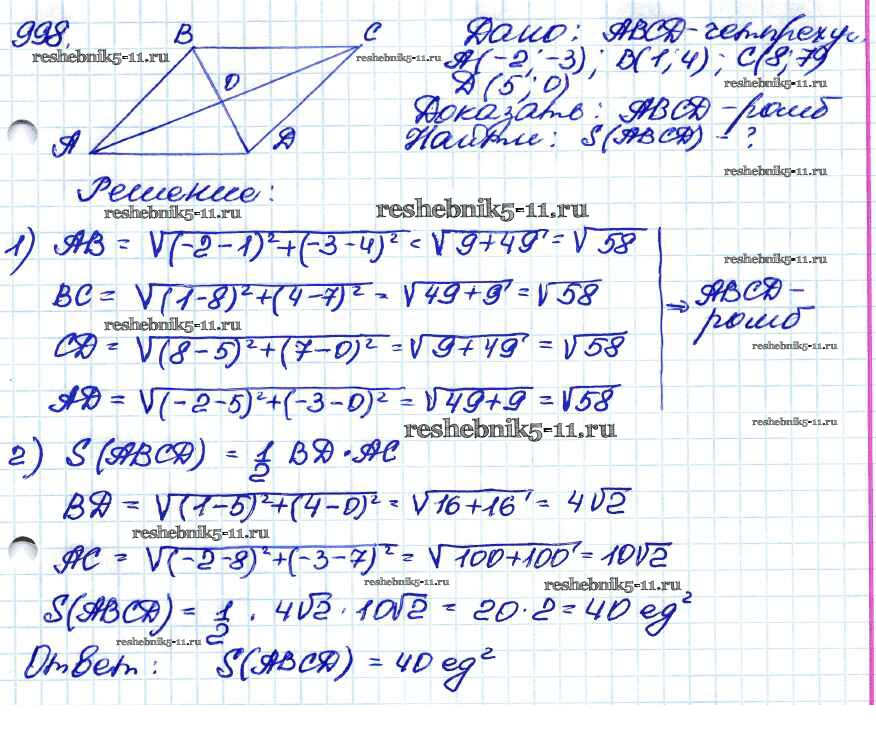 998. B C Дано: ABCD - четыреху.
reshebnik5-11.ru reshebnik5-11.ru A(-2; -3); B(1; 4); C(8; 7)
O D(5; 0) reshebnik5-11.ru
Доказать: ABCD - ромб
A D Найти: S(ABCD) - ?
reshebnik5-11.ru
Решение:
reshebnik5-11.ru reshebnik5-11.ru
1) AB = √(-2-1)²+(-3-4)² = √9+49 = √58
reshebnik5-11.ru
BC = √(1-8)²+(4-7)² = √49+9 = √58 ⇒ ABCD - ромб
reshebnik5-11.ru
CD = √(8-5)²+(7-0)² = √9+49 = √58
reshebnik5-11.ru
AD = √(-2-5)²+(-3-0)² = √49+9 = √58
reshebnik5-11.ru reshebnik5-11.ru
2) S(ABCD) = 1/2 BD · AC
BD = √(1-5)²+(4-0)² = √16+16 = 4√2
reshebnik5-11.ru
AC = √(-2-8)²+(-3-7)² = √100+100 = 10√2
reshebnik5-11.ru reshebnik5-11.ru
S(ABCD) = 1/2 · 4√2 · 10√2 = 20 · 2 = 40 ед²
reshebnik5-11.ru
Ответ: S(ABCD) = 40 ед²